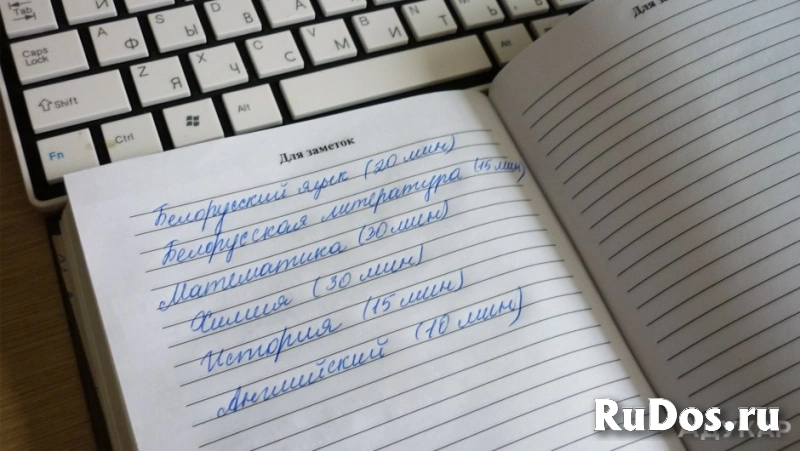 Tab
Caps Lock
A Ф
S Ы
D В
Shift
Z Я
X Ч
C С
V М
B И
N Т
M Ь
Fn
Ctrl
Alt
Alt
Для заметок
Белорусский язык (20 мин)
Белорусская литература (15 мин)
Математика (30 мин)
Химия (30 мин)
История (15 мин)
Английский (10 мин)
Для
RuDos.ru
АДУКАР